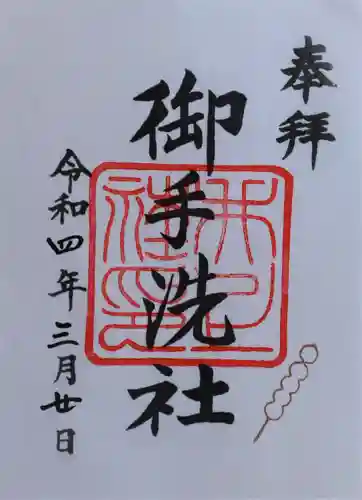 奉拝
御手洗社
令和四年三月廿日